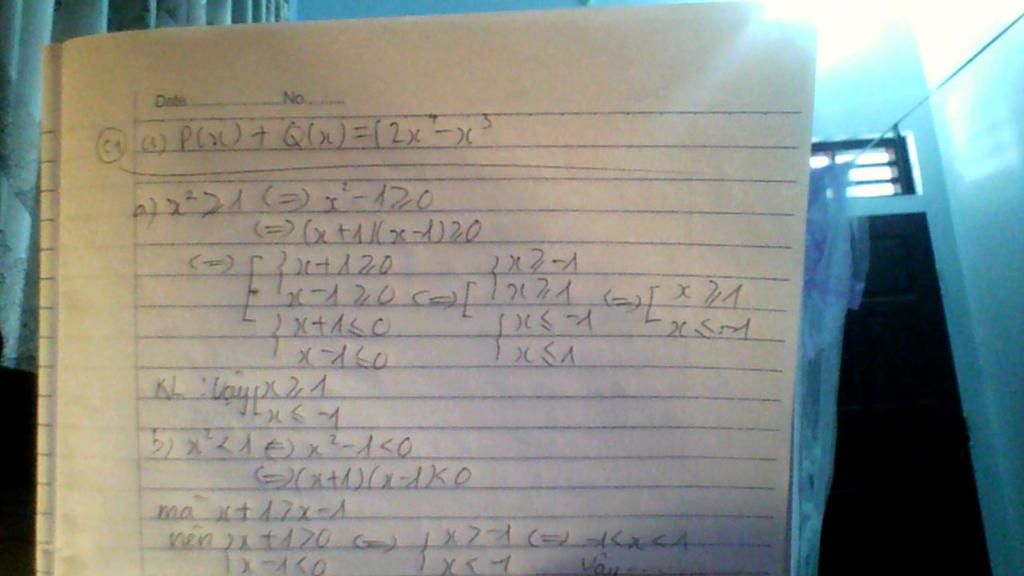 Date No
C1 a) P(x) + Q(x) = (2x⁴ - x³
a) x² ≥ 1 (=) x² - 1 ≥ 0
(=) (x+1)(x-1) ≥ 0
(=) [ { x+1 ≥ 0 { x ≥ -1
x-1 ≥ 0 (=) [ x ≥ 1 (=) [ x ≥ 1
{ x+1 ≤ 0 { x ≤ -1 x ≤ -1
x-1 ≤ 0 x ≤ 1
KL : Vậy [ x ≥ 1
x ≤ -1
b) x² < 1 (=) x² - 1 < 0
(=) (x+1)(x-1) < 0
mà x+1 > x-1
nên { x+1 > 0 (=) { x > -1 (=) -1 < x < 1
x-1 < 0 x < -1 Vậy